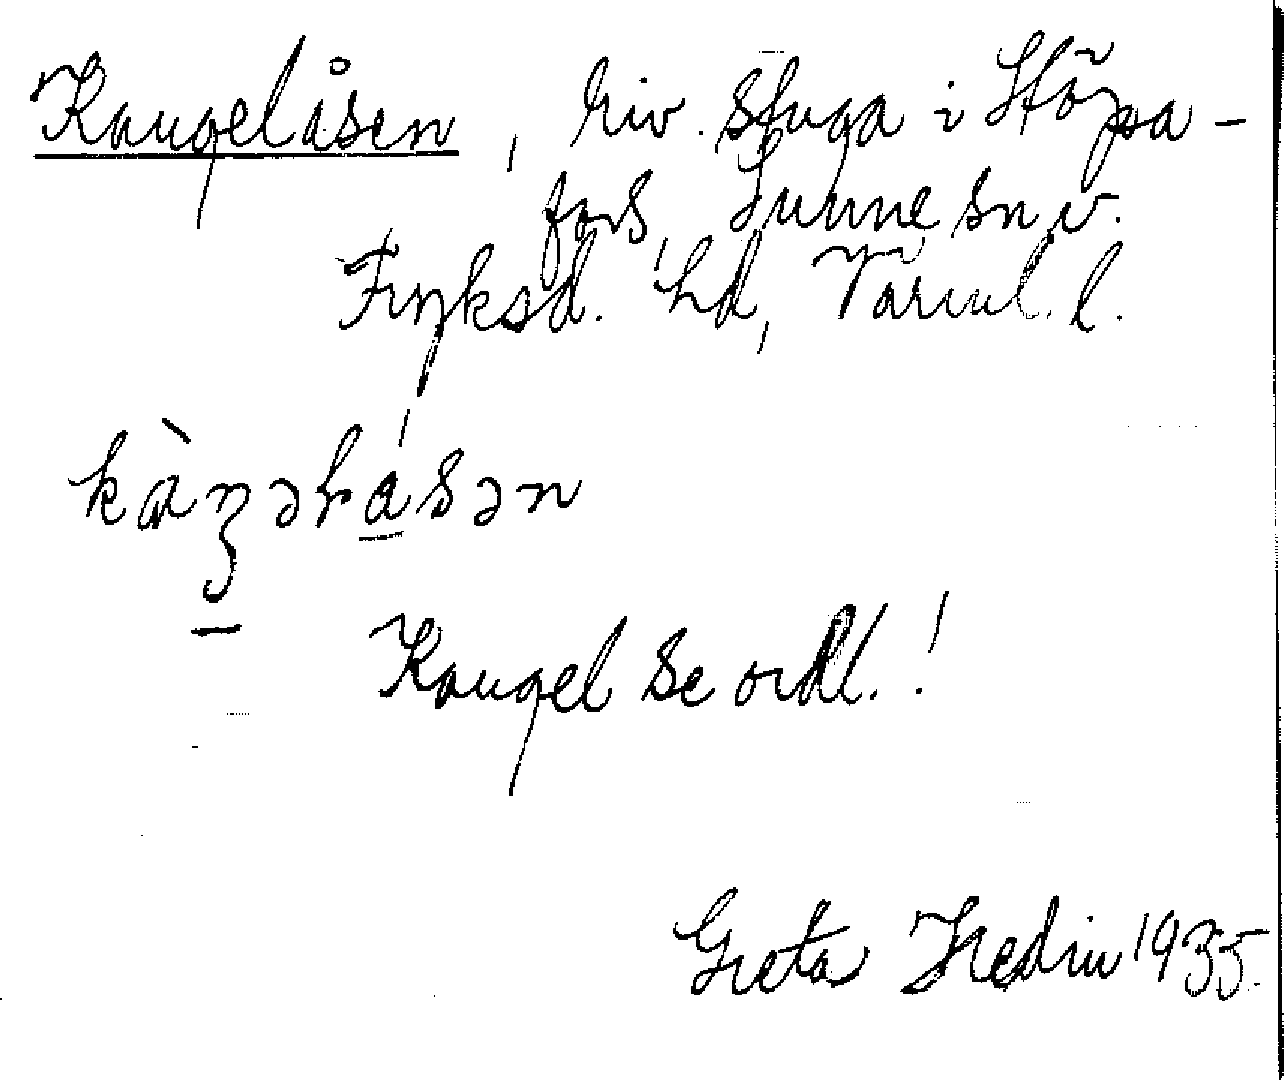 Kangelåsen, riv. stuga i Stöpa-
fors, Sunne sn v.
Fryksd. hd, Värml. l.
kàŋəɫåsən
Kangel se ordl.!
Greta Hedin 1935.